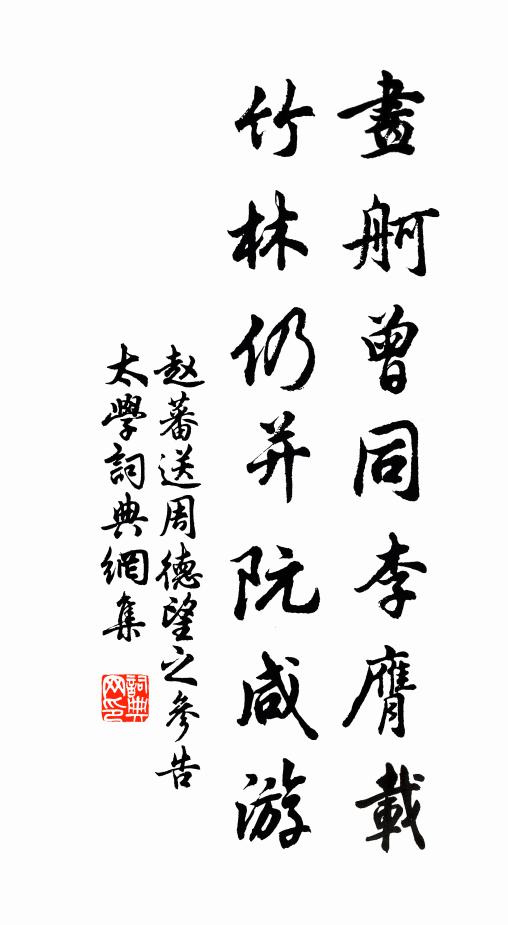 畫舸曾同李膺載
竹林仍并阮咸游
赵蕃送周德望之參告
太學詞典網集
詞典网印